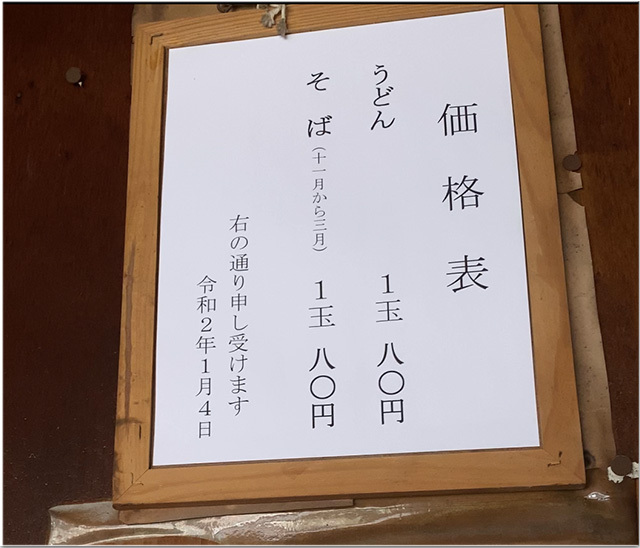 価格表
うどん 1玉 八〇円
そば（十一月から三月） 1玉 八〇円
右の通り申し受けます
令和2年1月4日